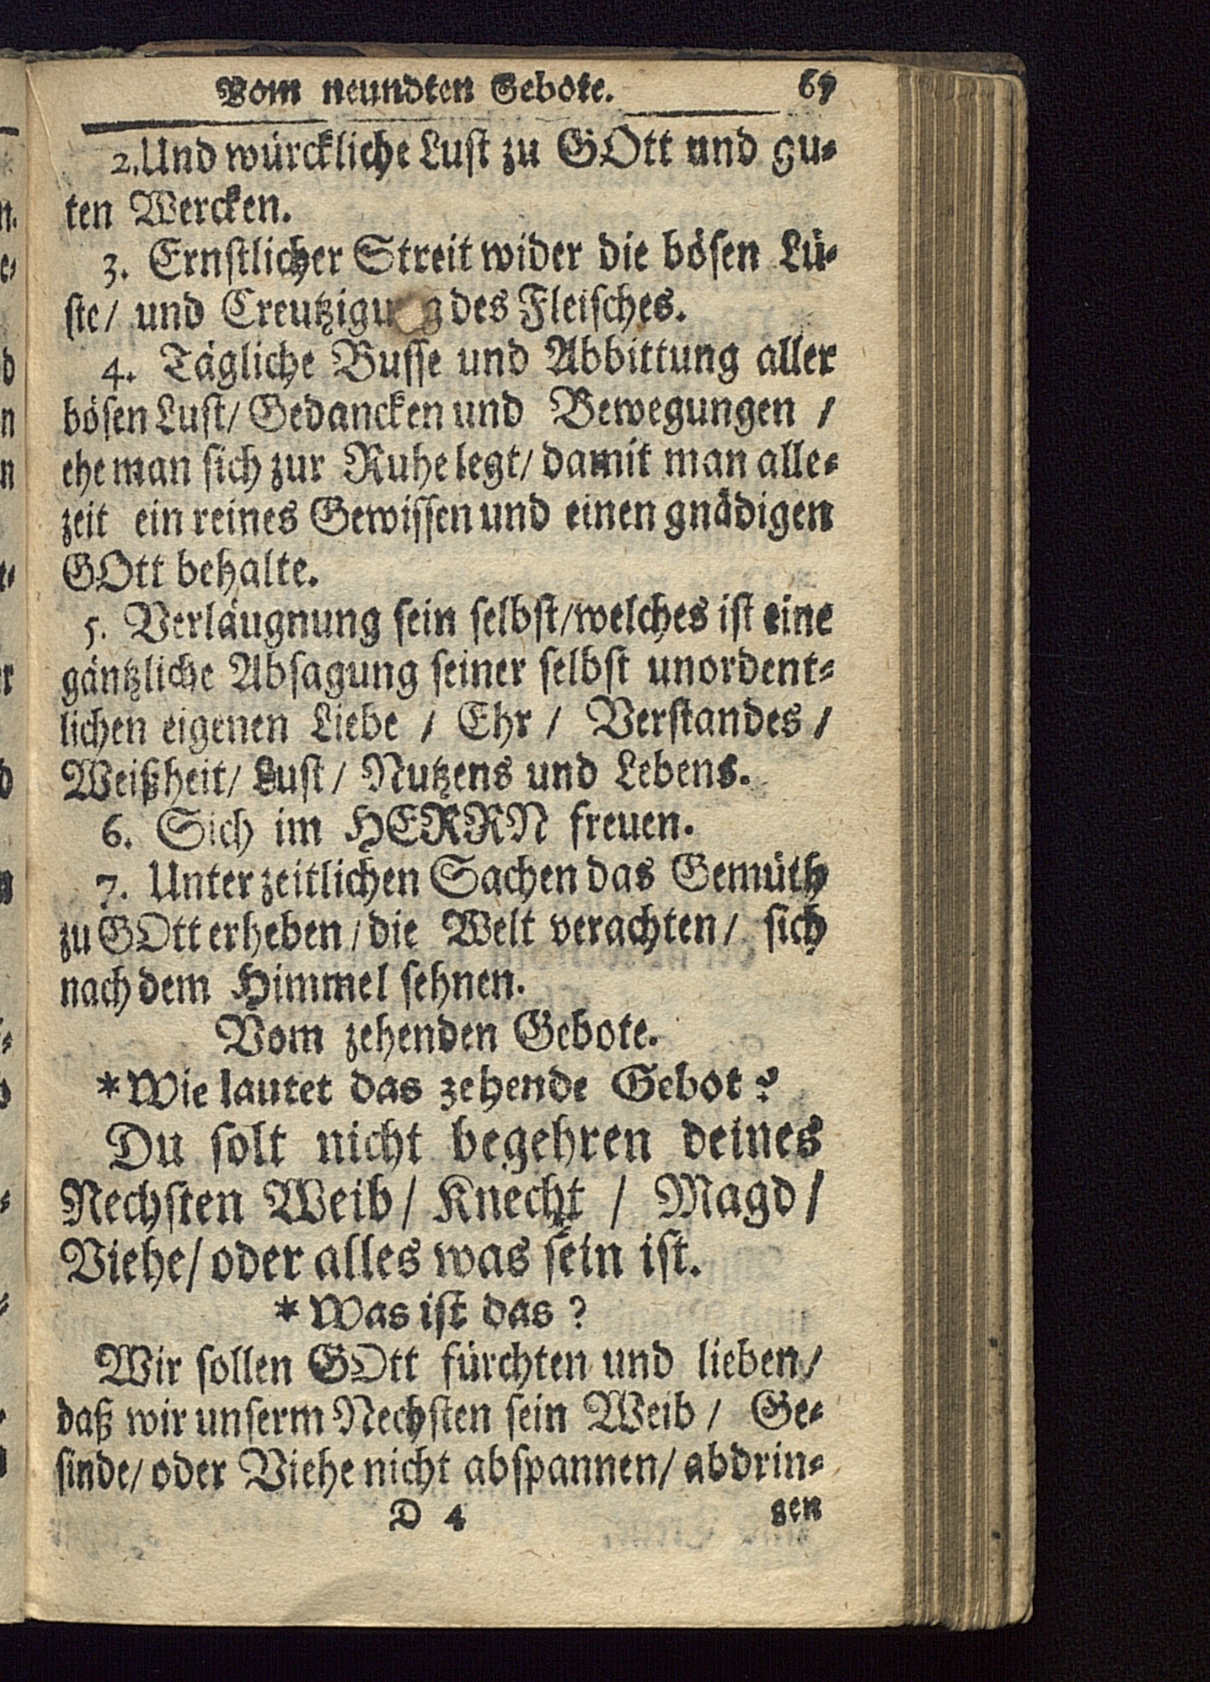 Vom neundten Gebote. 67
2. Und würckliche Lust zu GOtt und gu-
ten Wercken.
3. Ernstlicher Streit wider die bösen Lü-
ste/ und Creutzigung des Fleisches.
4. Tägliche Busse und Abbittung aller
bösen Lust/ Gedancken und Bewegungen /
ehe man sich zur Ruhe legt/ damit man alle-
zeit ein reines Gewissen und einen gnädigen
GOtt behalte.
5. Verläugnung sein selbst/ welches ist eine
gäntzliche Absagung seiner selbst unordent-
lichen eigenen Liebe / Ehr / Verstandes /
Weißheit/ Lust/ Nutzens und Lebens.
6. Sich im HERRN freuen.
7. Unter zeitlichen Sachen das Gemüth
zu GOtt erheben/ die Welt verachten/ sich
nach dem Himmel sehnen.
Vom zehenden Gebote.
*Wie lautet das zehende Gebot?
Du solt nicht begehren deines
Nechsten Weib/ Knecht / Magd/
Viehe/ oder alles was sein ist.
*Was ist das?
Wir sollen GOtt fürchten und lieben/
daß wir unserm Nechsten sein Weib / Ge-
sinde/ oder Viehe nicht abspannen/ abdrin-
D 4 gen